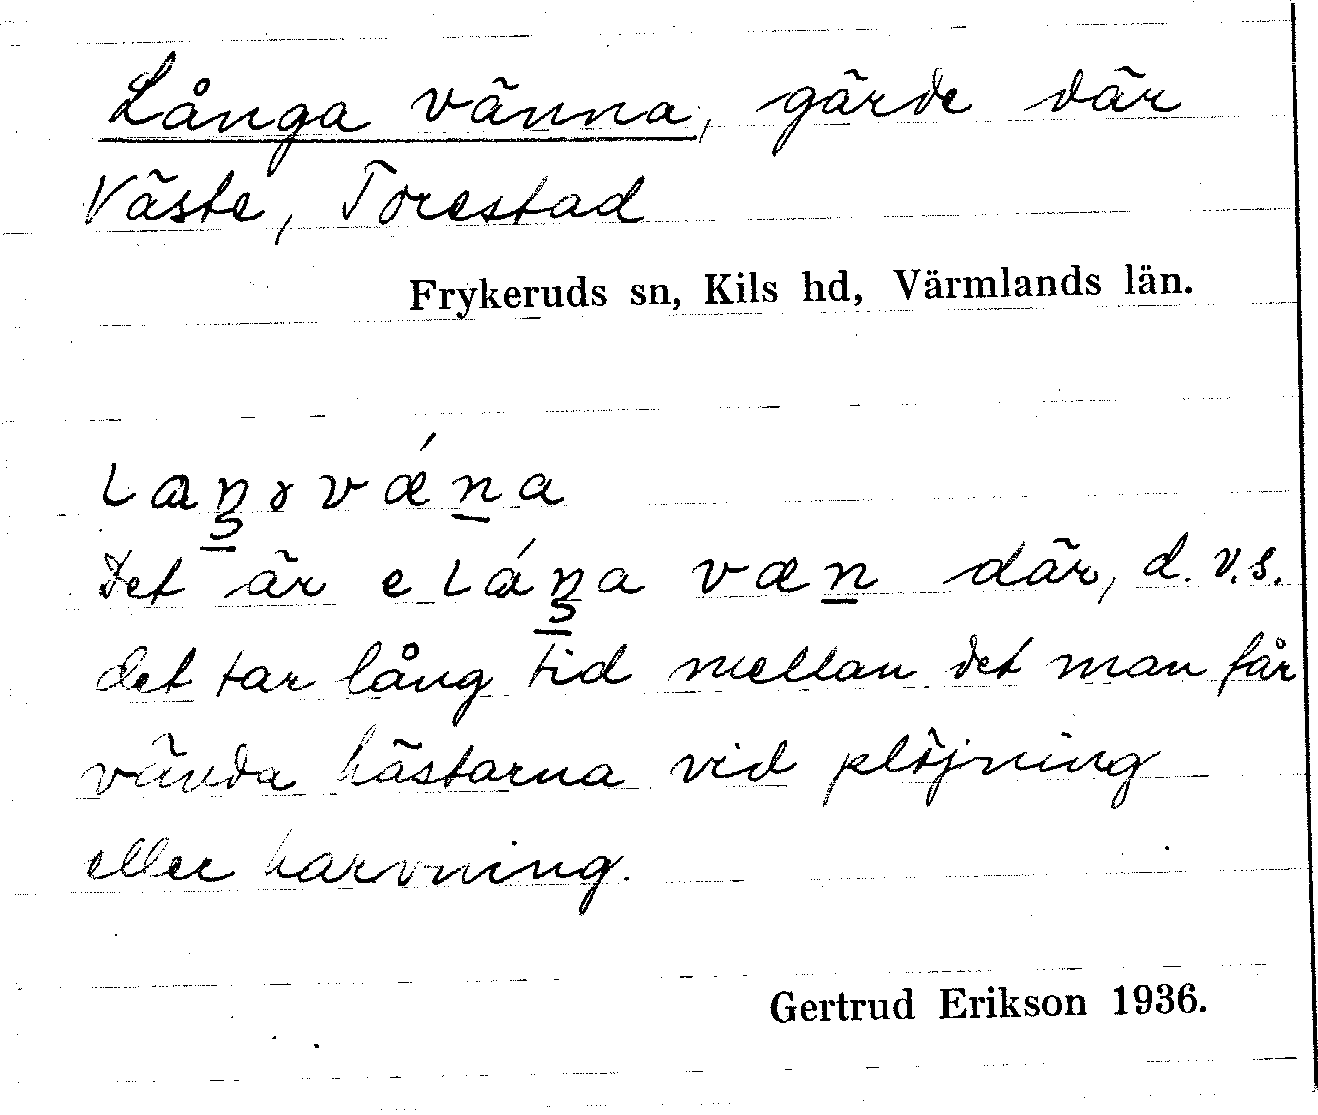 Långa vänna, gärde där
Väste, Torestad
Frykeruds sn, Kils hd, Värmlands län.
Det är e van där, d.v.s.
det tar lång tid mellan det man får
vända hästarna vid plöjning
eller harvning.
Gertrud Erikson 1936.